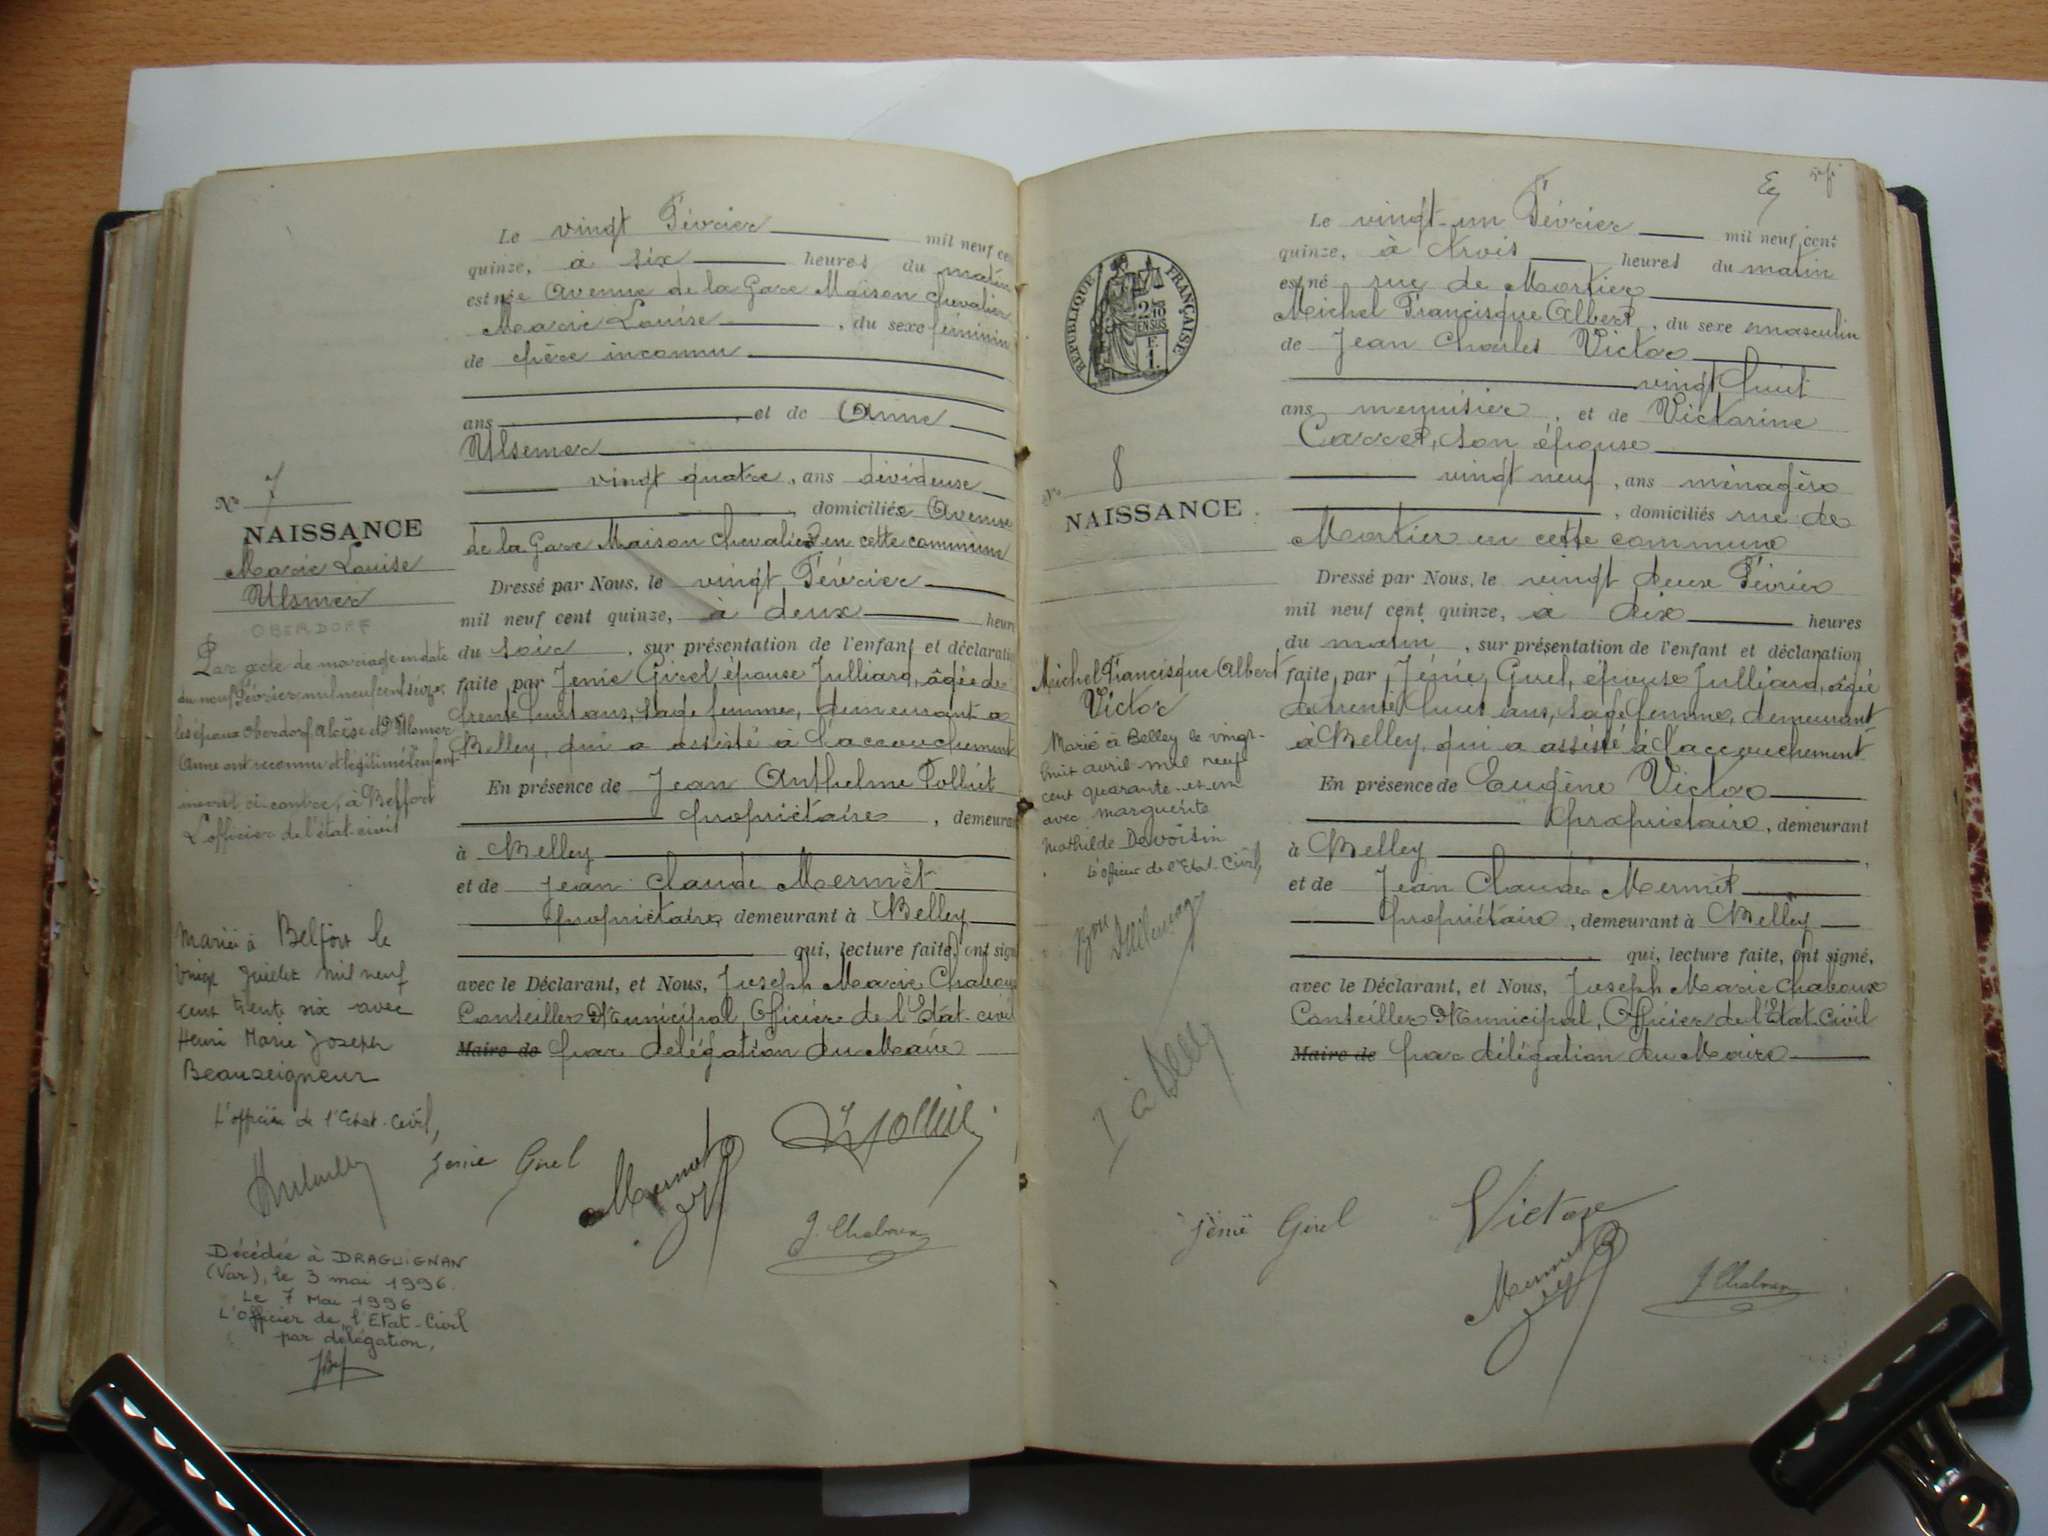 Le vingt Février mil neuf ce
quinze, à six heures du matin
est née Avenue de la Gare Maison Chevalier
Marie Louise, du sexe féminin
de père inconnu
ans, et de Anne
Ulsemer
vingt quatre, ans dévideuse
, domiciliée Avenue
de la Gare Maison Chevalier en cette commune
Dressé par Nous, le vingt Février
mil neuf cent quinze, à deux heure
du soir, sur présentation de l'enfant et déclaratio
faite par Jénie Girel épouse Julliard, âgée de
trente huit ans, sage femme, demeurant à
Belley, qui a assisté à l'accouchement
En présence de Jean Anthelme Polliet
propriétaire, demeura
à Belley
et de Jean Claude Mermet
propriétaire, demeurant à Belley
qui, lecture faite, ont sign
avec le Déclarant, et Nous, Joseph Marie Chaboux
Conseiller Municipal, Officier de l'Etat-civil
Maire de par délégation du Maire
Nº 7
NAISSANCE
Marie Louise
Ulsmer
OBERDORF
Par acte de mariage en date
du neuf Février, mil neuf cent seize,
les époux Oberdorf Aloïse et Ulsmer
Anne ont reconnu et légitimé l'enfant
inscrit ci-contre, à Belfort
L'officier de l'état-civil
Mariée à Belfort le
vingt Juillet mil neuf
cent trente six avec
Henri Marie Joseph
Beauseigneur
L'officier de l'Etat-Civil,
Jenie Girel
Mermet
J. Chaboux
Décédée à DRAGUIGNAN
(Var), le 3 mai 1996.
Le 7 Mai 1996
L'Officier de l'Etat-Civil
par délégation,
Le vingt-un Février mil neuf cent
quinze, à trois heures du matin
est né rue de Mortier
Michel Francisque Albert, du sexe masculin
de Jean Charles Victor
vingt huit
ans menuisier, et de Victorine
Carret, son épouse
vingt neuf, ans ménagère
, domiciliés rue de
Mortier en cette commune
Dressé par Nous, le vingt deux Février
mil neuf cent quinze, à dix heures
du matin, sur présentation de l'enfant et déclaration
faite par Jénie Girel, épouse Julliard, âgée
de trente huit ans, sage femme, demeurant
à Belley, qui a assisté à l'accouchement
En présence de Eugène Victor
propriétaire, demeurant
à Belley,
et de Jean Claude Mermet
propriétaire, demeurant à Belley
qui, lecture faite, ont signé,
avec le Déclarant, et Nous, Joseph Marie Chaboux
Conseiller Municipal, Officier de l'Etat-Civil
Maire de par délégation du Maire
RÉPUBLIQUE FRANÇAISE
2/10
EN SUS
F.
1.
No 8
NAISSANCE
Michel Francisque Albert
Victor
Marié à Belley le vingt-
huit avril mil neuf
cent quarante-et-un
avec Marguerite
Mathilde Devoisin
L'officier de l'Etat-Civil,
Jénie Girel
Victor
Mermet
J. Chaboux